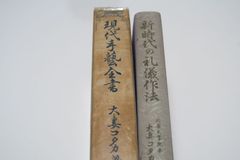 現代手藝全書
大妻コタカ
新時代の礼儀作法
大妻コタカ